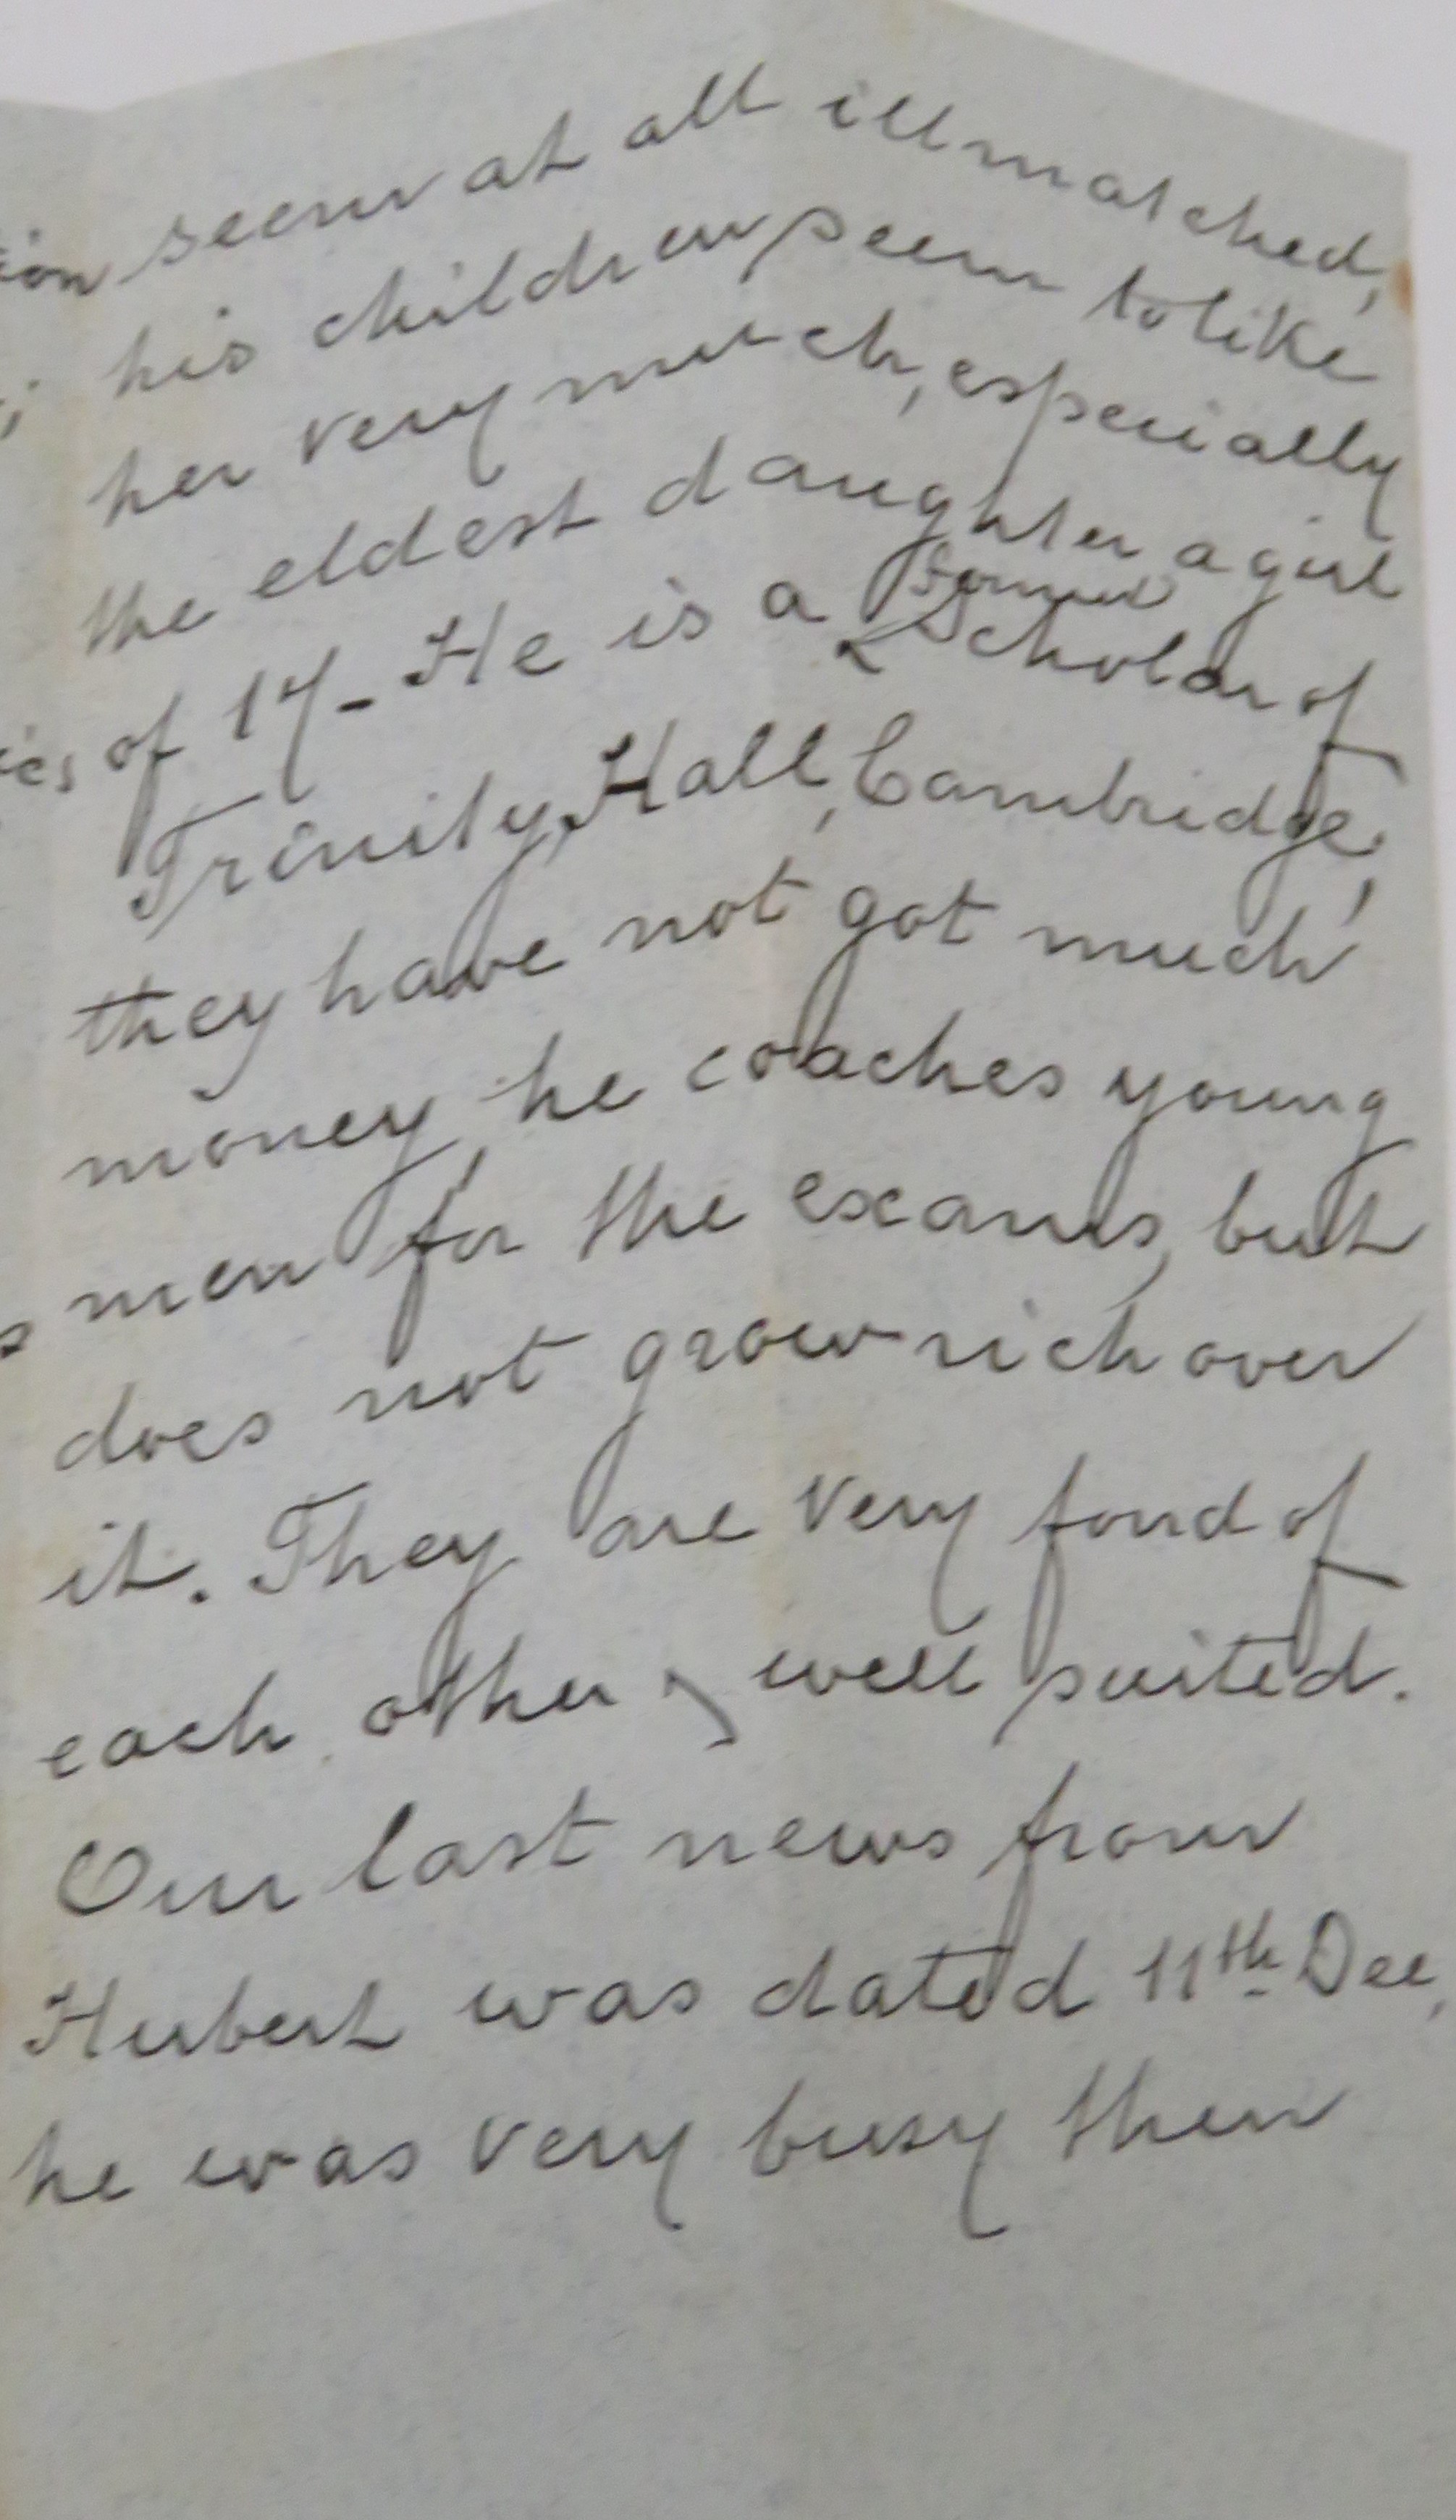 seem at all illmatched,
his children seem to like
her very much, especially
the eldest daughter a girl
of 17 - He is a former Scholar of
Trinity Hall, Cambridge,
they have not got much
money, he coaches young
men for the exams, but
does not grow rich over
it. They are very fond of
each other & well suited.
Our last news from
Hubert was dated 11th Dec,
he was very busy then